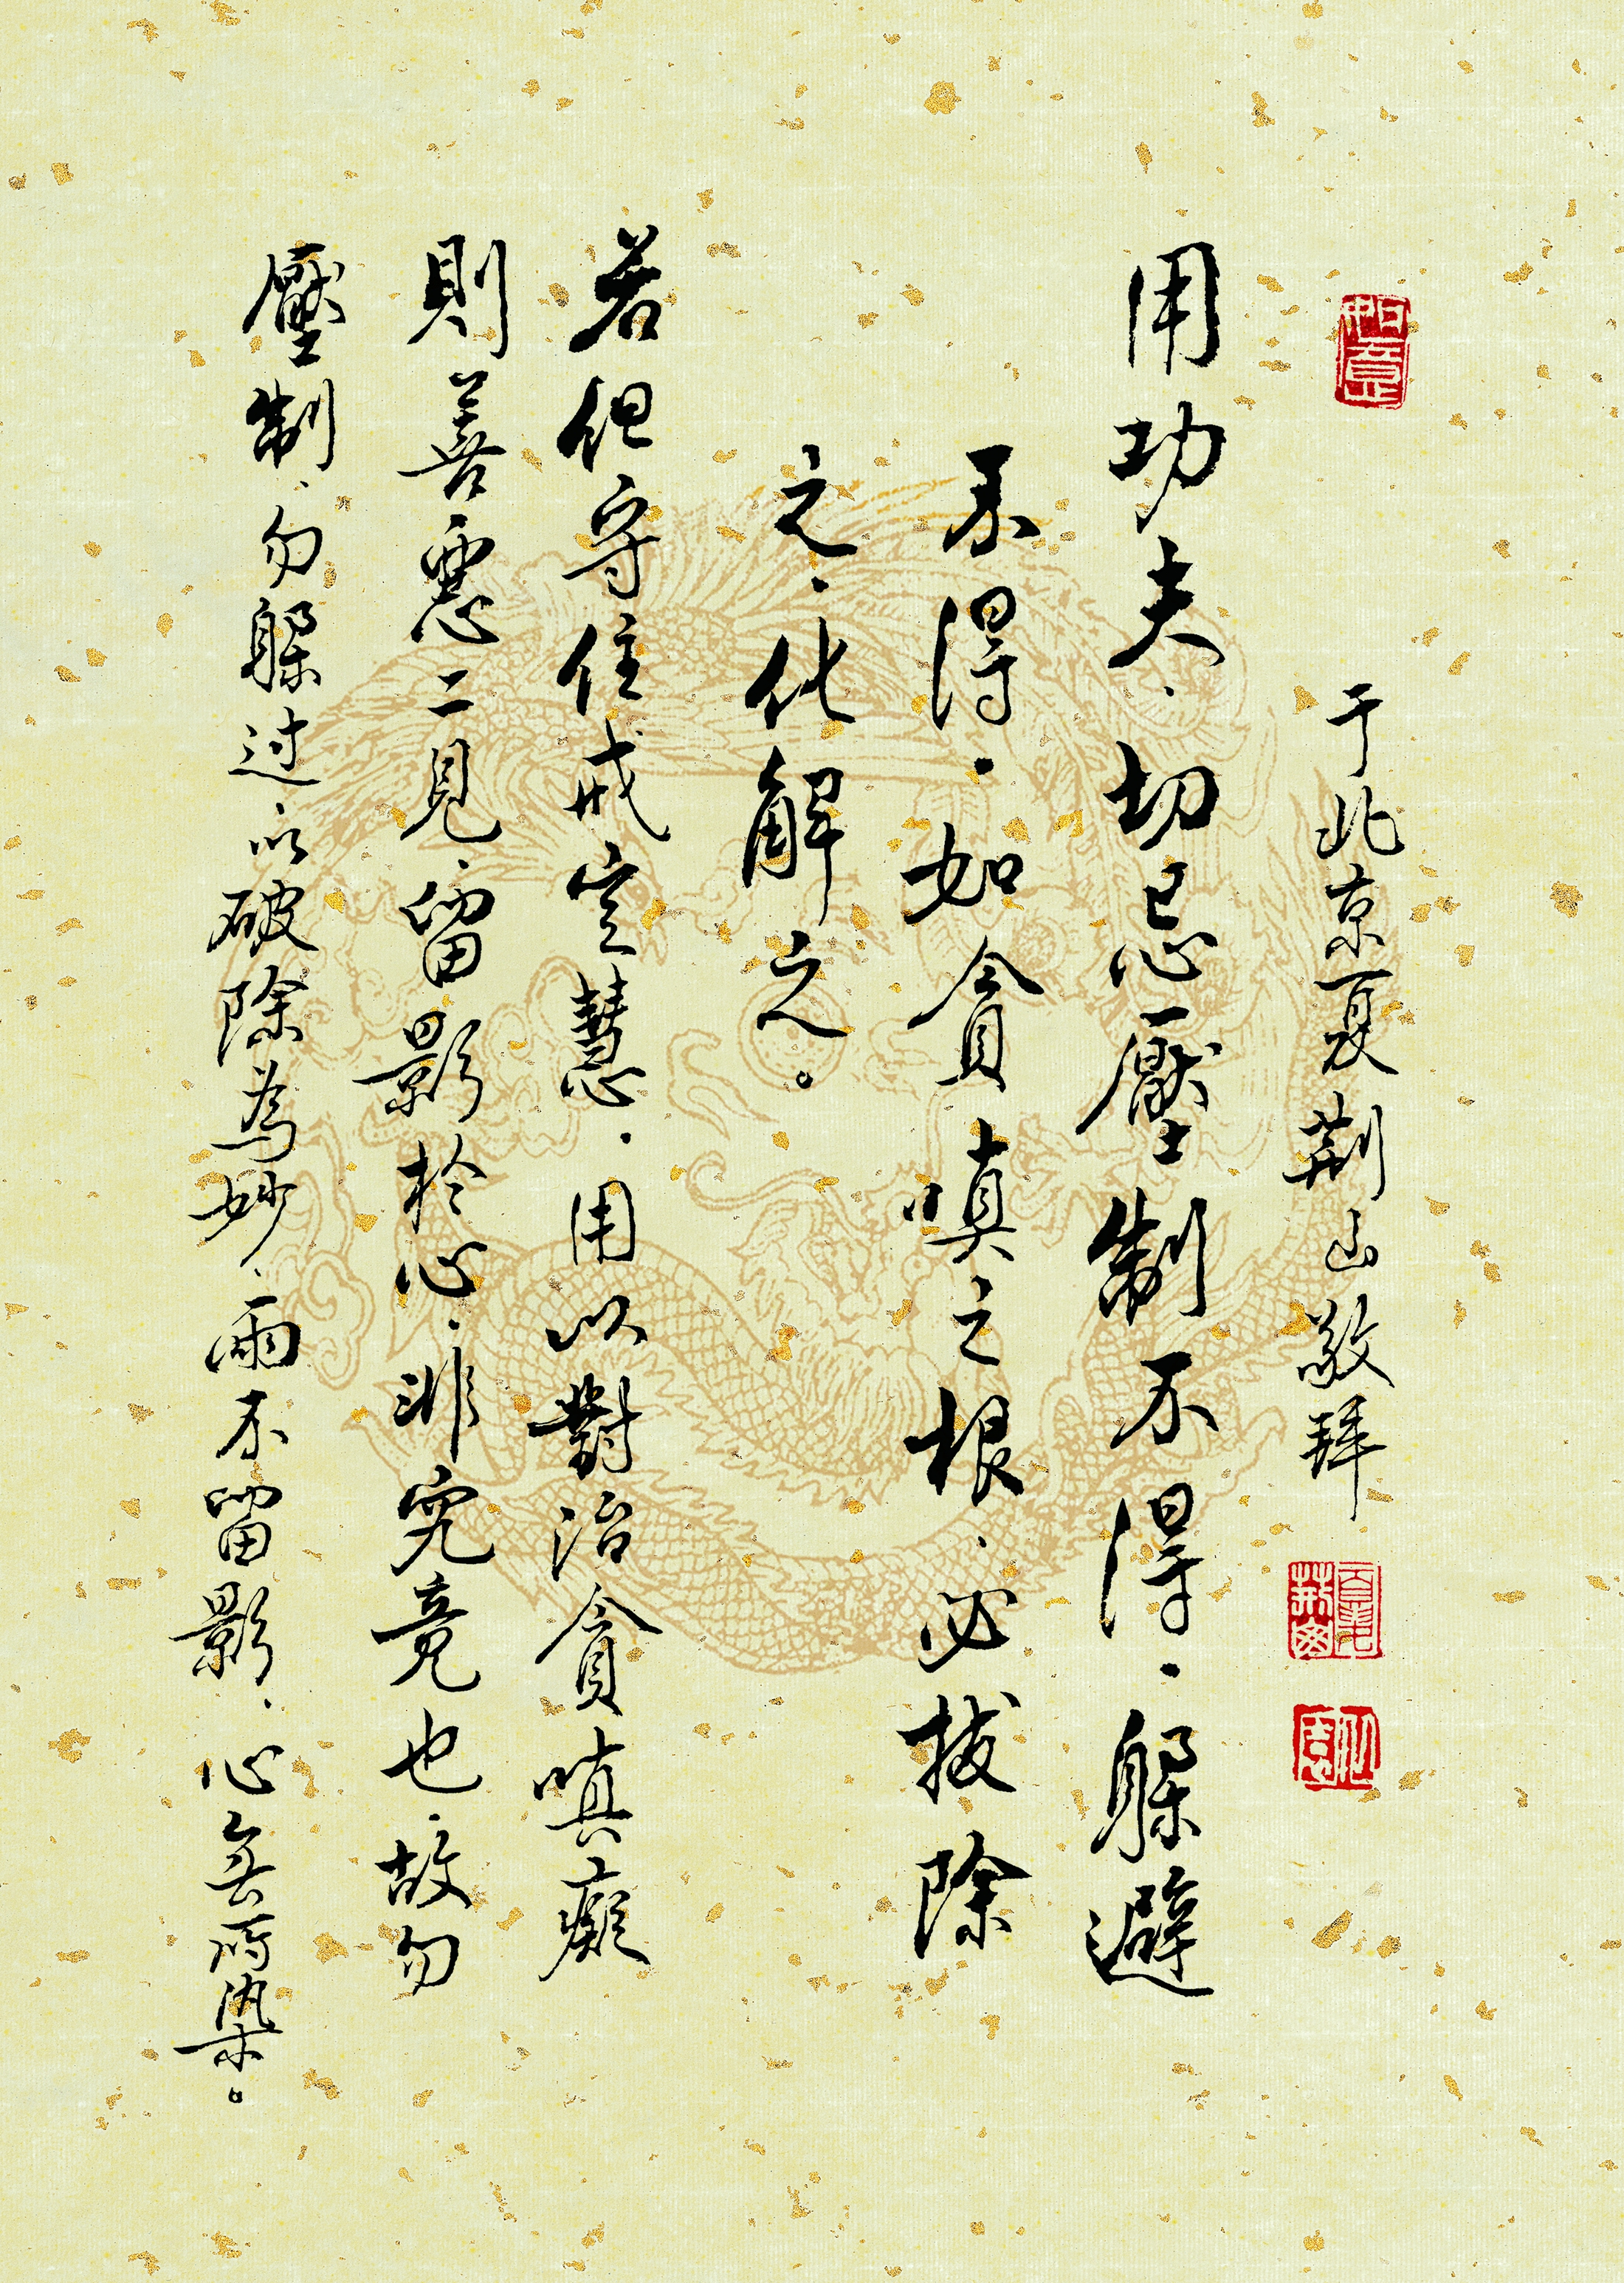 于北京夏荆山敬拜
用功夫、切忌壓制不得、躲避
不得、如貪嗔之根、必拔除
之、化解之。
若但守住戒定慧、用以對治貪嗔癡
則善惡二見、留影於心、非究竟也、故勿
壓制、勿躲过、以破除為妙、雨不留影、心無所染。